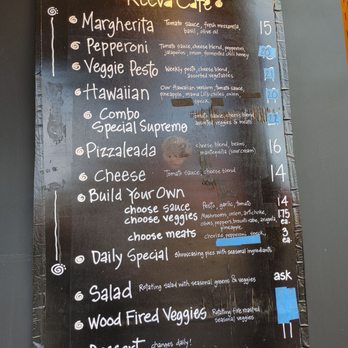 Reeva Cafe
Margherita Tomato sauce, fresh mozzarella, 15
basil, olive oil
Pepperoni Tomato sauce, cheese blend, pepperoni,
jalapeños, onion, fermented chili honey
Veggie Pesto Weekly pesto, cheese blend
assorted vegetables
Hawaiian Our Hawaiian version, tomato sauce,
pineapple, onion,
speck
Combo Tomato sauce, cheese blend
Special Supreme assorted veggies & meats
Pizzaleada cheese blend, beans, 16
mantequilla (sour cream)
Cheese Tomato sauce, cheese blend 14
Build Your Own 14
choose sauce Pesto, garlic, tomato
choose veggies Mushrooms, onion, artichoke, 1.75
olives, peppers, broccoli, 2
pineapple
choose meats chorizo, pepperoni, speck 3
Daily Special Showcasing pies with seasonal ingredients
ask
Salad Rotating salad with seasonal greens & veggies
Wood Fired Veggies Rotating fire roasted
seasonal veggies 11
Dessert changes daily!